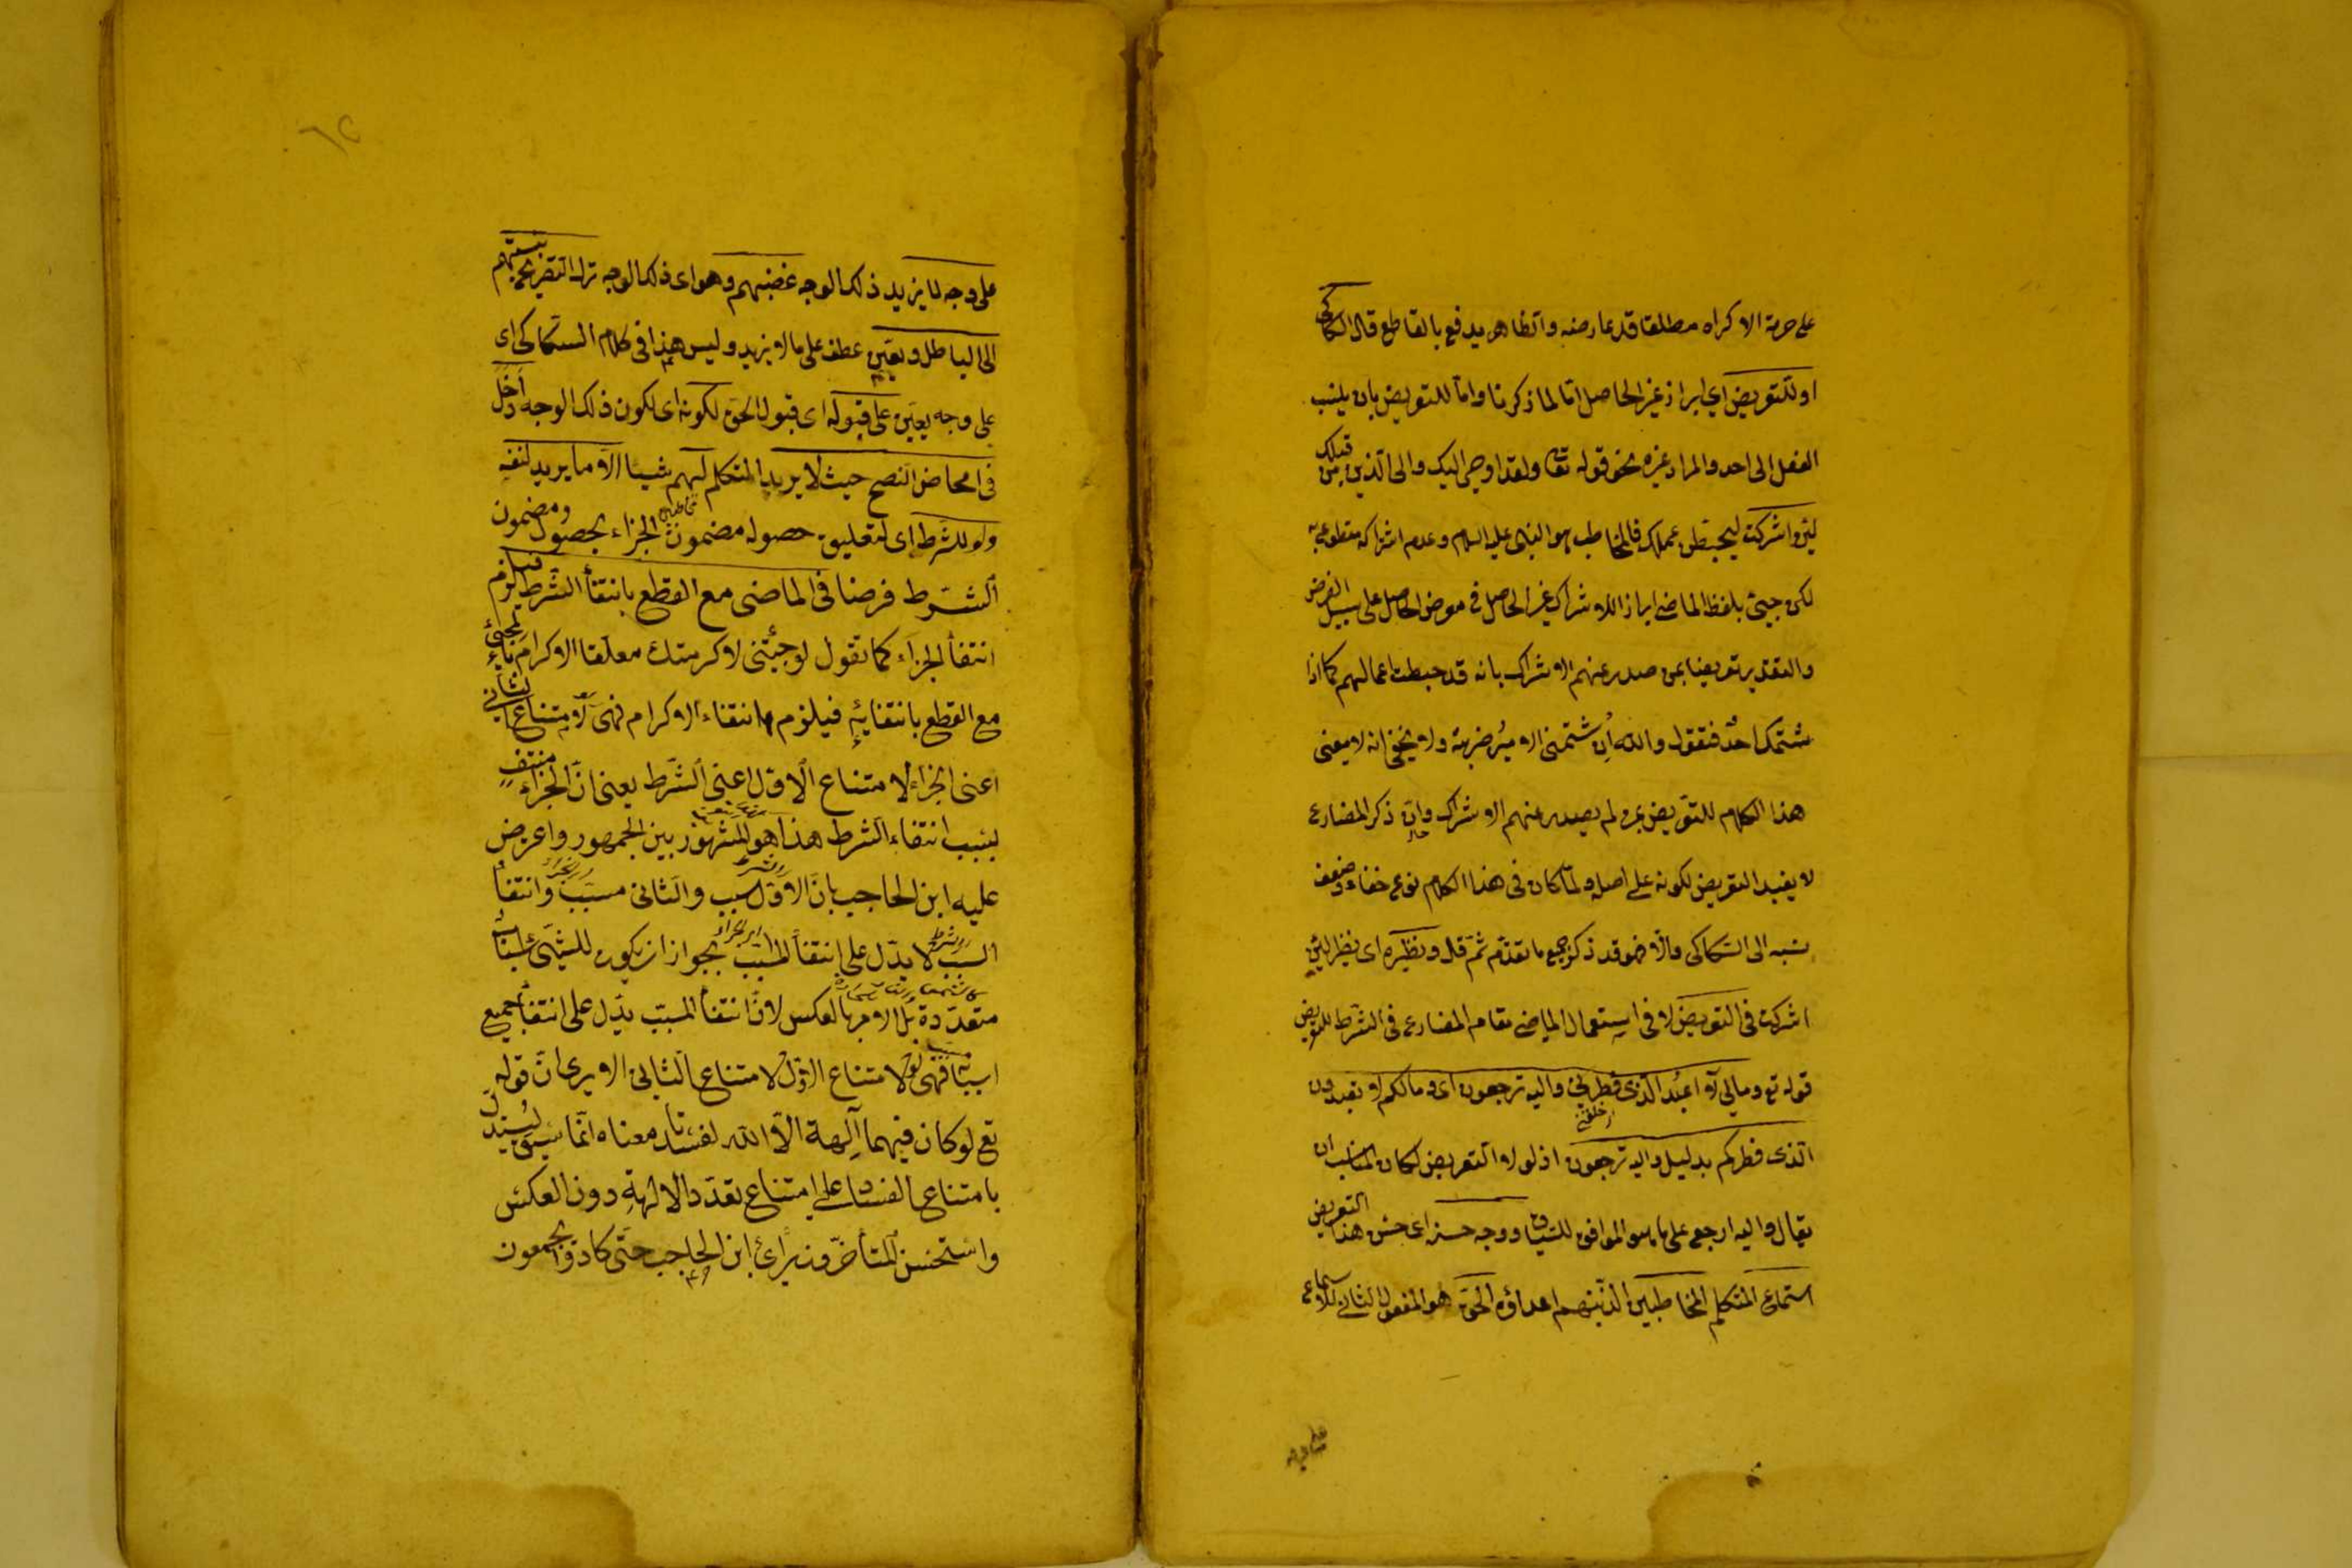 على حرمة الاكراه مطلقا قد عارضه والظاهر يدفع بالقاطع قال السكاكى
او للتعريض اى ابراز غير الحاصل اما لما ذكرنا واما للتعريض بان ينسب
الفعل الى احد والمراد غيره نحو قوله تعا ولقد اوحى اليك والى الذين من قبلك
لئن اشركت ليحبطن عملك فالمخاطب هو النبى عليه السلام وعدم اشراكه مقطوع به
لكن جيئ بلفظ الماضى ابراز الاشراك غير الحاصل فى معرض الحاصل على سبيل الفرض
والتقدير تعريضا بمن صدر عنهم الاشراك بانه قد حبطت اعمالهم كما اذا
شتمك احد فتقول والله ان شتمنى الامير ضربته ولا يخفى انه لا معنى
هذا الكلام للتعريض بمن لم يصدر عنهم الاشراك وان ذكر المضارع
لا يفيد التعريض لكونه على اصله ولما كان فى هذا الكلام نوع خفاء وضعف
نسبه الى السكاكى والا فهو قد ذكر جميع ما تقدم ثم قال ونظيره اى نظير لئن
اشركت فى التعريض لا فى استعمال الماضى مقام المضارع فى الشرط للتعريض
قوله تع ومالى لا اعبد الذى فطرنى واليه ترجعون اى وما لكم لا تعبدون
الذى فطركم بدليل واليه ترجعون اذ لولا التعريض لكان المناسب ان
يقال واليه ارجع على ما هو الموافق للسياق ووجه حسنه اى حسن هذا التعريض
استماع المتكلم المخاطبين الذينهم اعداؤه الحق هو المفعول الثانى للاسماع
على وجه
على وجه لا يزيد ذلك الوجه غضبهم وهو اى ذلك الوجه ترك التصريح بنسبتهم
الى الباطل ويعين عطف على ما لا يزيد وليس هذا فى كلام السكاكى اى
على وجه يعين على قبوله اى قبول الحق لكونه اى لكون ذلك الوجه ادخل
فى امحاض النصح حيث لا يريد المتكلم لهم شيئا الا ما يريد لنفسه
ولو للشرط اى لتعليق حصول مضمون الجزاء بحصول ومضمون
الشرط فرضا فى الماضى مع القطع بانتفأ الشرط فيلزم
انتفأ الجزاء كما تقول لو جئتنى لاكرمتك معلقا الاكرام بالمجئ
مع القطع بانتفائه فيلزم انتفاء الاكرام فهى لامتناع الثانى
اعنى الجزاء لامتناع الاول اعنى الشرط يعنى ان الجزاء منتف
بسبب انتفاء الشرط هذا هو المشهور بين الجمهور واعرض
عليه ابن الحاجب بان الاول سبب والثانى مسبب وانتفأ
السبب لا يدل على انتفأ المسبب بجواز ان يكون للشيئ اسباب
متعددة بل الامر بالعكس لان انتفأ المسبب يدل على انتفأ جميع
اسبابه فهى لامتناع الاول لامتناع الثانى الا يرى ان قوله
تع لو كان فيهما آلهة الا الله لفسدتا معناه انما سيق ليستدل
بامتناع الفساد على امتناع تعدد الالهة دون العكس
واستحسن المتأخرون برأى ابن الحاجب حتى كادوا يجمعون